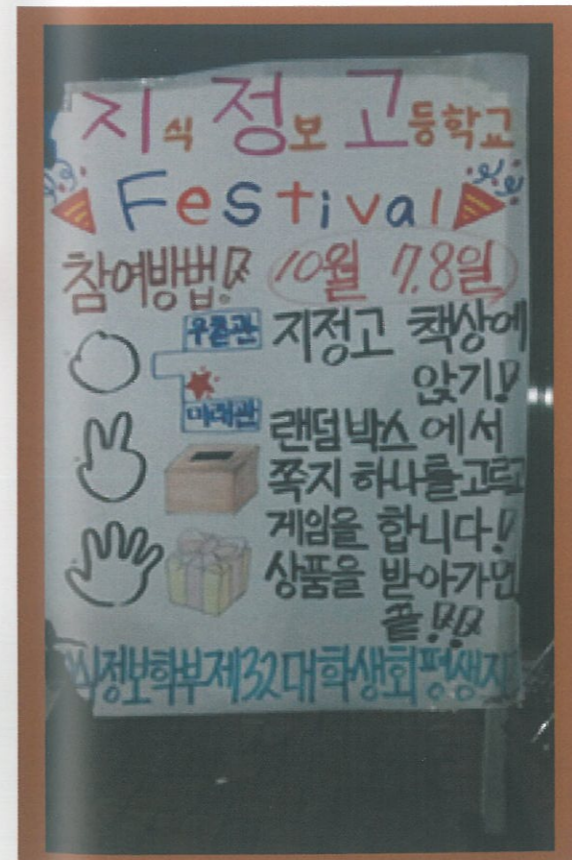 지식 정보 고등학교
Festival
참여방법! 10월 7,8일
우촌관 지정고 책상에
앉기!
미래관
랜덤박스에서
쪽지 하나를 고르고
게임을 합니다!
상품을 받아가면
끝!!
식정보학부 제32대 학생회 평생지